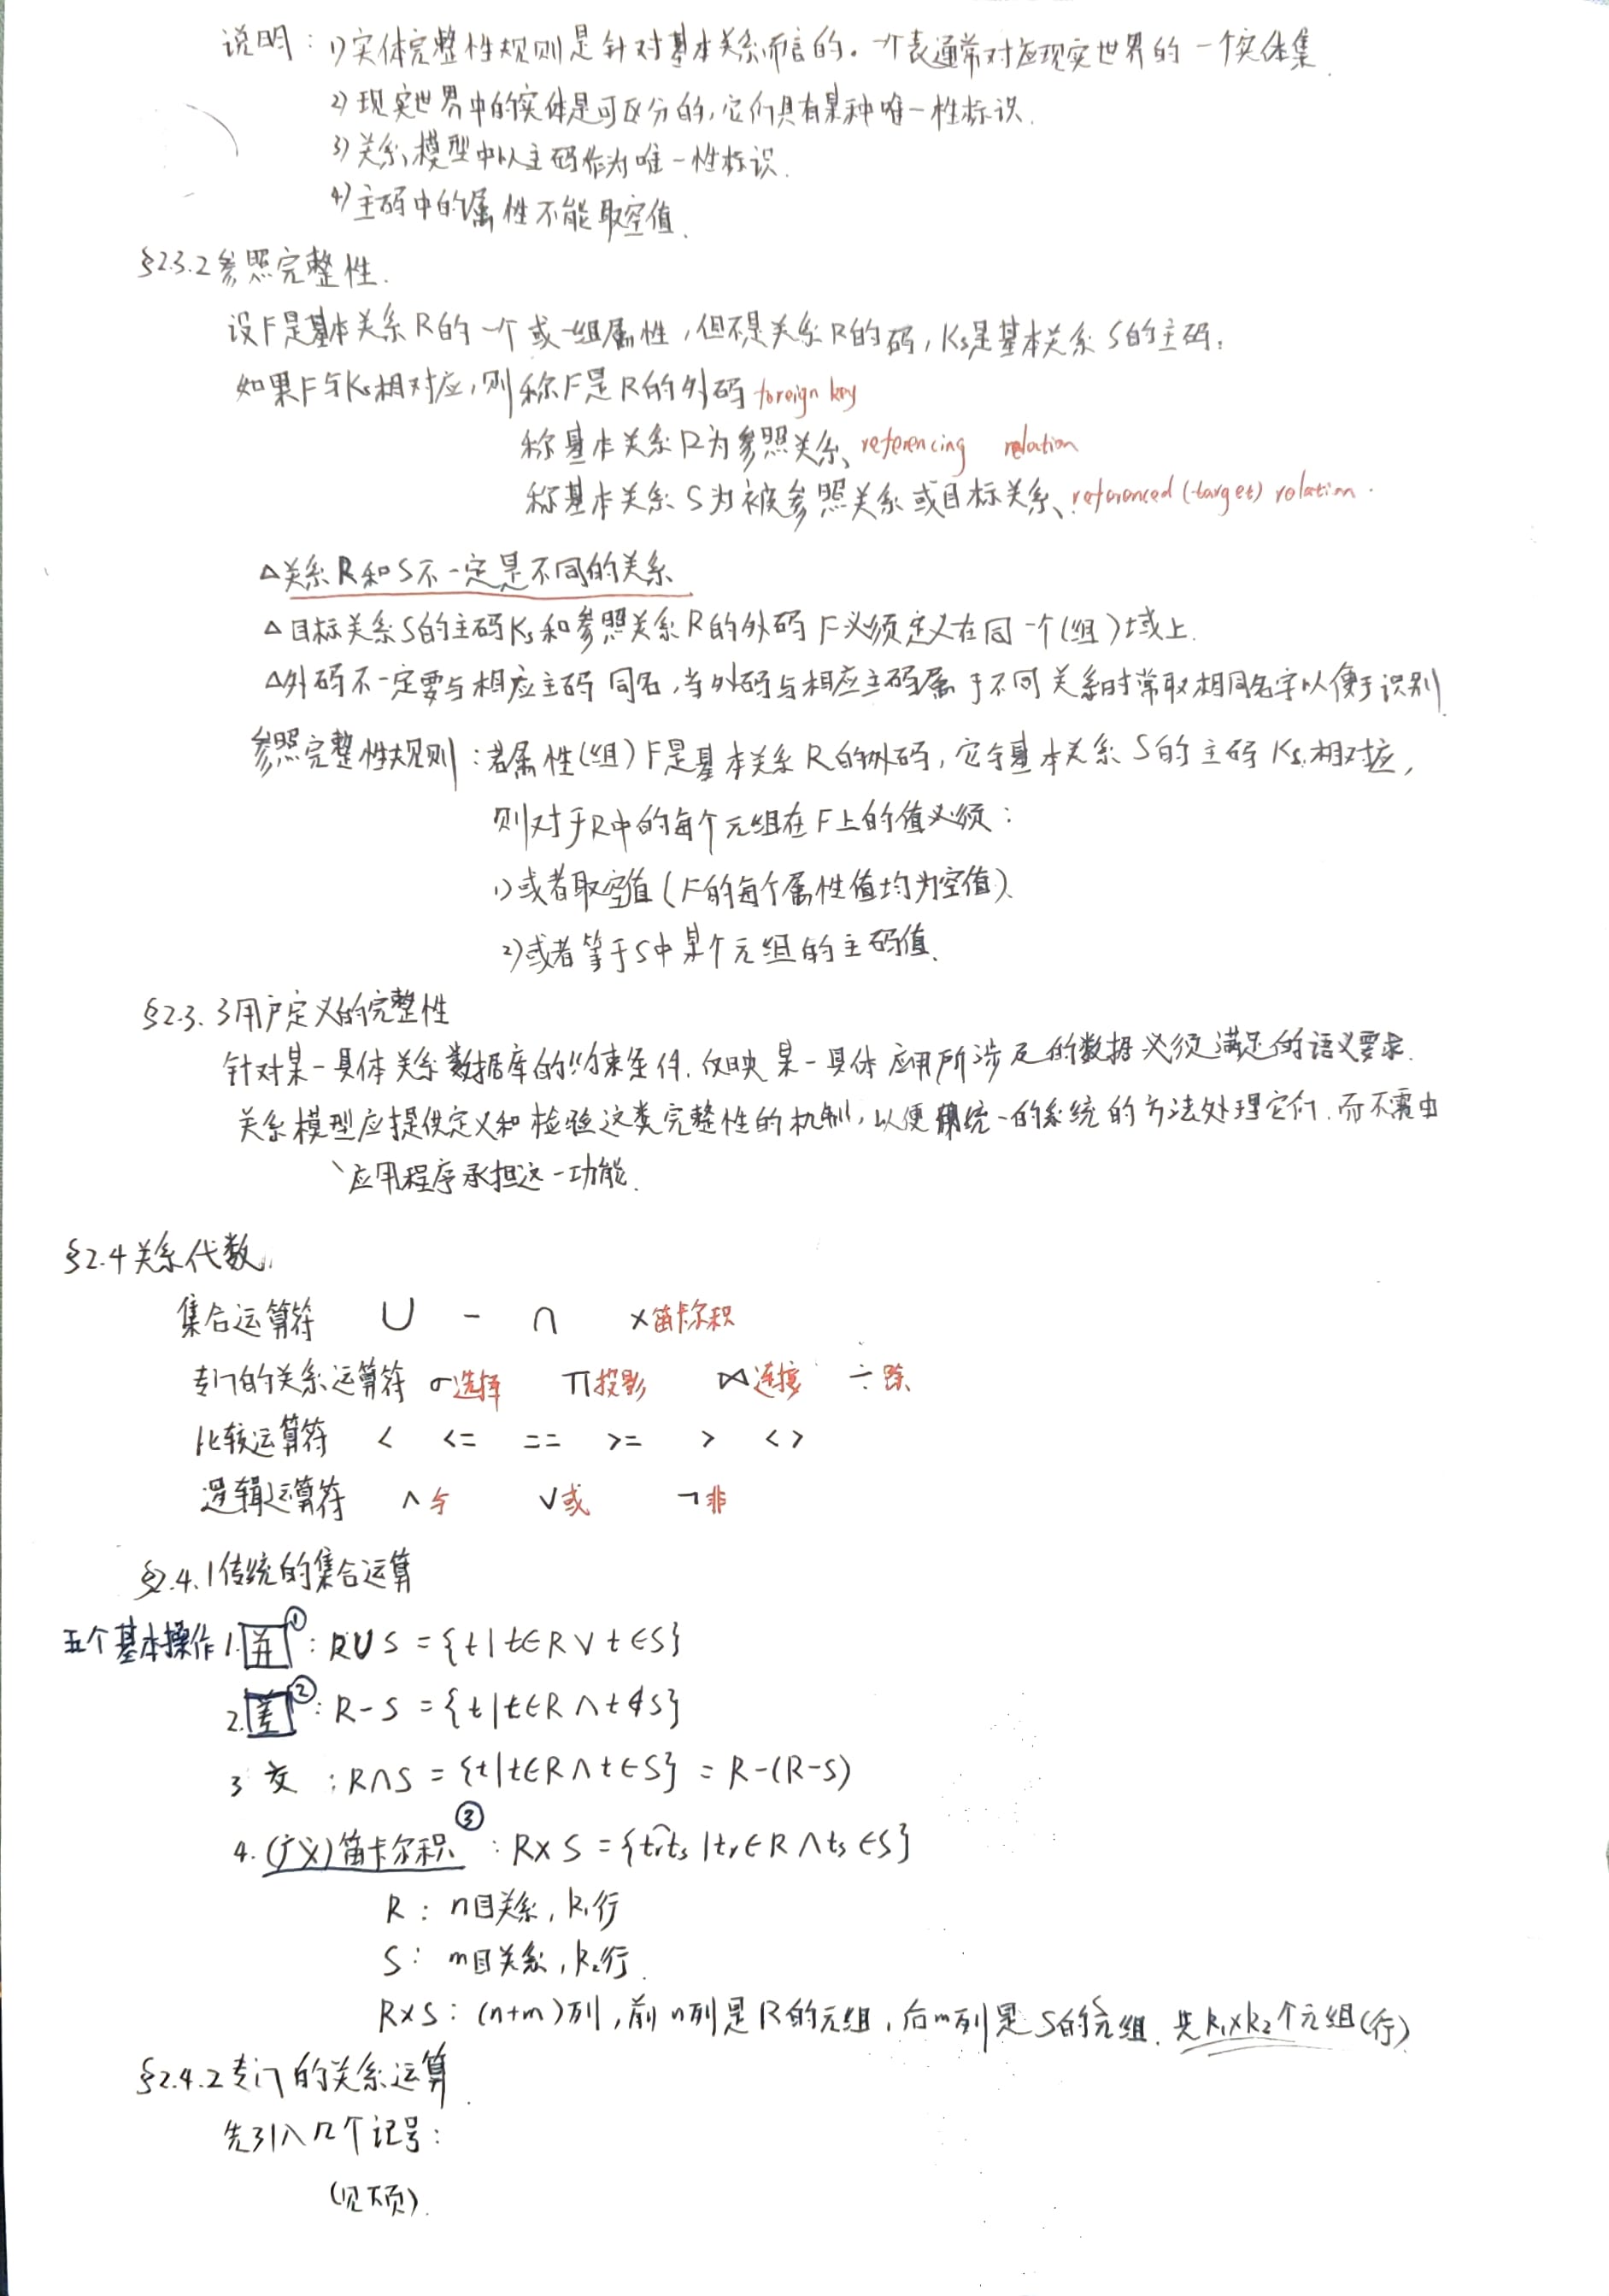 说明：1)实体完整性规则是针对基本关系而言的。一个表通常对应现实世界的一个实体集.
2)现实世界中的实体是可区分的,它们具有某种唯一性标识.
3)关系模型中以主码作为唯一性标识.
4)主码中的属性不能取空值.
§2.3.2参照完整性.
设F是基本关系R的一个或一组属性,但不是关系R的码,Ks是基本关系S的主码.
如果F与Ks相对应,则称F是R的外码 foreign key
称基本关系R为参照关系、referencing relation
称基本关系S为被参照关系或目标关系、referenced (target) relation.
△关系R和S不一定是不同的关系
△目标关系S的主码Ks和参照关系R的外码F必须定义在同一个(组)域上.
△外码不一定要与相应主码同名,当外码与相应主码属于不同关系时常取相同名字以便于识别
参照完整性规则：若属性(组)F是基本关系R的外码,它与基本关系S的主码Ks相对应,
则对于R中的每个元组在F上的值必须：
1)或者取空值(F的每个属性值均为空值)、
2)或者等于S中某个元组的主码值.
§2.3.3用户定义的完整性
针对某一具体关系数据库的约束条件.反映某一具体应用所涉及的数据必须满足的语义要求.
关系模型应提供定义和检验这类完整性的机制,以便用统一的系统的方法处理它们.而不需由
应用程序承担这一功能.
§2.4关系代数.
集合运算符 ∪ - ∩ ×笛卡尔积
专门的关系运算符 σ选择 Π投影 ⋈连接 ÷除
比较运算符 < <= == >= > <>
逻辑运算符 ∧与 ∨或 ¬非
§2.4.1传统的集合运算
五个基本操作 1.并①：R∪S={t|t∈R∨t∈S}
2.差②：R-S={t|t∈R∧t∉S}
3 交：R∩S={t|t∈R∧t∈S}=R-(R-S)
4.(广义)笛卡尔积③：R×S={t͡rts|tr∈R∧ts∈S}
R：n目关系,k₁行
S：m目关系,k₂行.
R×S：(n+m)列,前n列是R的元组,后m列是S的元组.共k₁×k₂个元组(行)
§2.4.2专门的关系运算.
先引入几个记号：
(见下页).